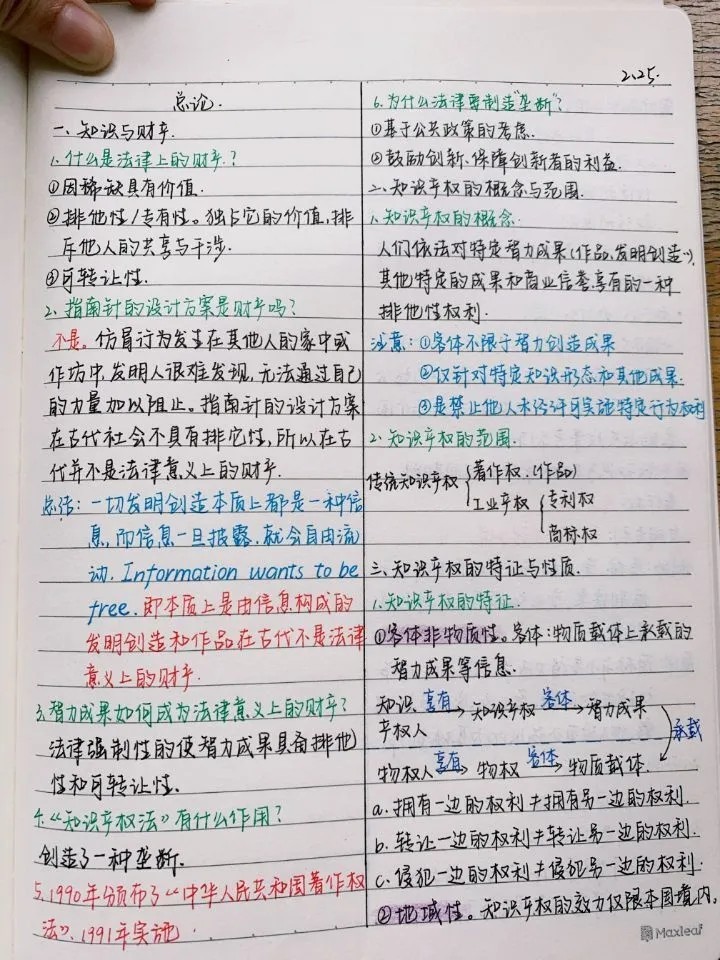 2.25.
总论.
一、知识与财产.
1.什么是法律上的财产?
①因稀缺具有价值.
②排他性/专有性。独占它的价值,排
斥他人的共享与干涉.
③可转让性.
2.指南针的设计方案是财产吗?
不是。仿冒行为发生在其他人的家中或
作坊中,发明人很难发现,无法通过自己
的力量加以阻止。指南针的设计方案
在古代社会不具有排它性,所以在古
代并不是法律意义上的财产.
总结:一切发明创造本质上都是一种信
息,而信息一旦披露,就会自由流
动. Information wants to be
free. 即本质上是由信息构成的
发明创造和作品在古代不是法律
意义上的财产.
3.智力成果如何成为法律意义上的财产?
法律强制性的使智力成果具备排他
性和可转让性.
4.《知识产权法》有什么作用?
创造了一种垄断.
5.1990年颁布了《中华人民共和国著作权
法》、1991年实施
6.为什么法律要制造"垄断"?
①基于公共政策的考虑.
②鼓励创新、保障创新者的利益.
二、知识产权的概念与范围.
1.知识产权的概念.
人们依法对特定智力成果(作品、发明创造…)、
其他特定的成果和商业信誉享有的一种
排他性权利.
注意:①客体不限于智力创造成果
②仅针对特定知识形态和其他成果.
③是禁止他人未经许可实施特定行为权利
2.知识产权的范围.
传统知识产权 { 著作权.(作品)
工业产权 { 专利权
商标权
三、知识产权的特征与性质.
1.知识产权的特征.
①客体非物质性。客体:物质载体上承载的
智力成果等信息.
知识产权人 享有→ 知识产权 客体→ 智力成果
承载
物权人 享有→ 物权 客体→ 物质载体.
a.拥有一边的权利≠拥有另一边的权利.
b.转让一边的权利≠转让另一边的权利.
c.侵犯一边的权利≠侵犯另一边的权利.
②地域性。知识产权的效力仅限本国境内。
Maxleaf